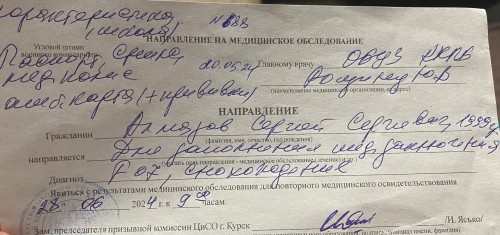 характеристика
(школа) № 688
Угловой штамп НАПРАВЛЕНИЕ НА МЕДИЦИНСКОЕ ОБСЛЕДОВАНИЕ
военного комиссариата
20.05.24 Главному врачу ОБУЗ
(наименование медицинской организации, адрес)
амб. карта (+ прививки)
НАПРАВЛЕНИЕ
Гражданин Алмазов Сергей Сергеевич, 1999
(фамилия, имя, отчество, год рождения)
направляется Для заполнения мед. заключения
(указать цель направления - медицинское обследование, лечение и др.)
Диагноз F 07, снохождение
Явиться с результатами медицинского обследования для повторного медицинского освидетельствования
28 06 2024 г. к 9 00 часам.
Зам. председателя призывной комиссии ЦиСО г. Курск /И. Ясько/